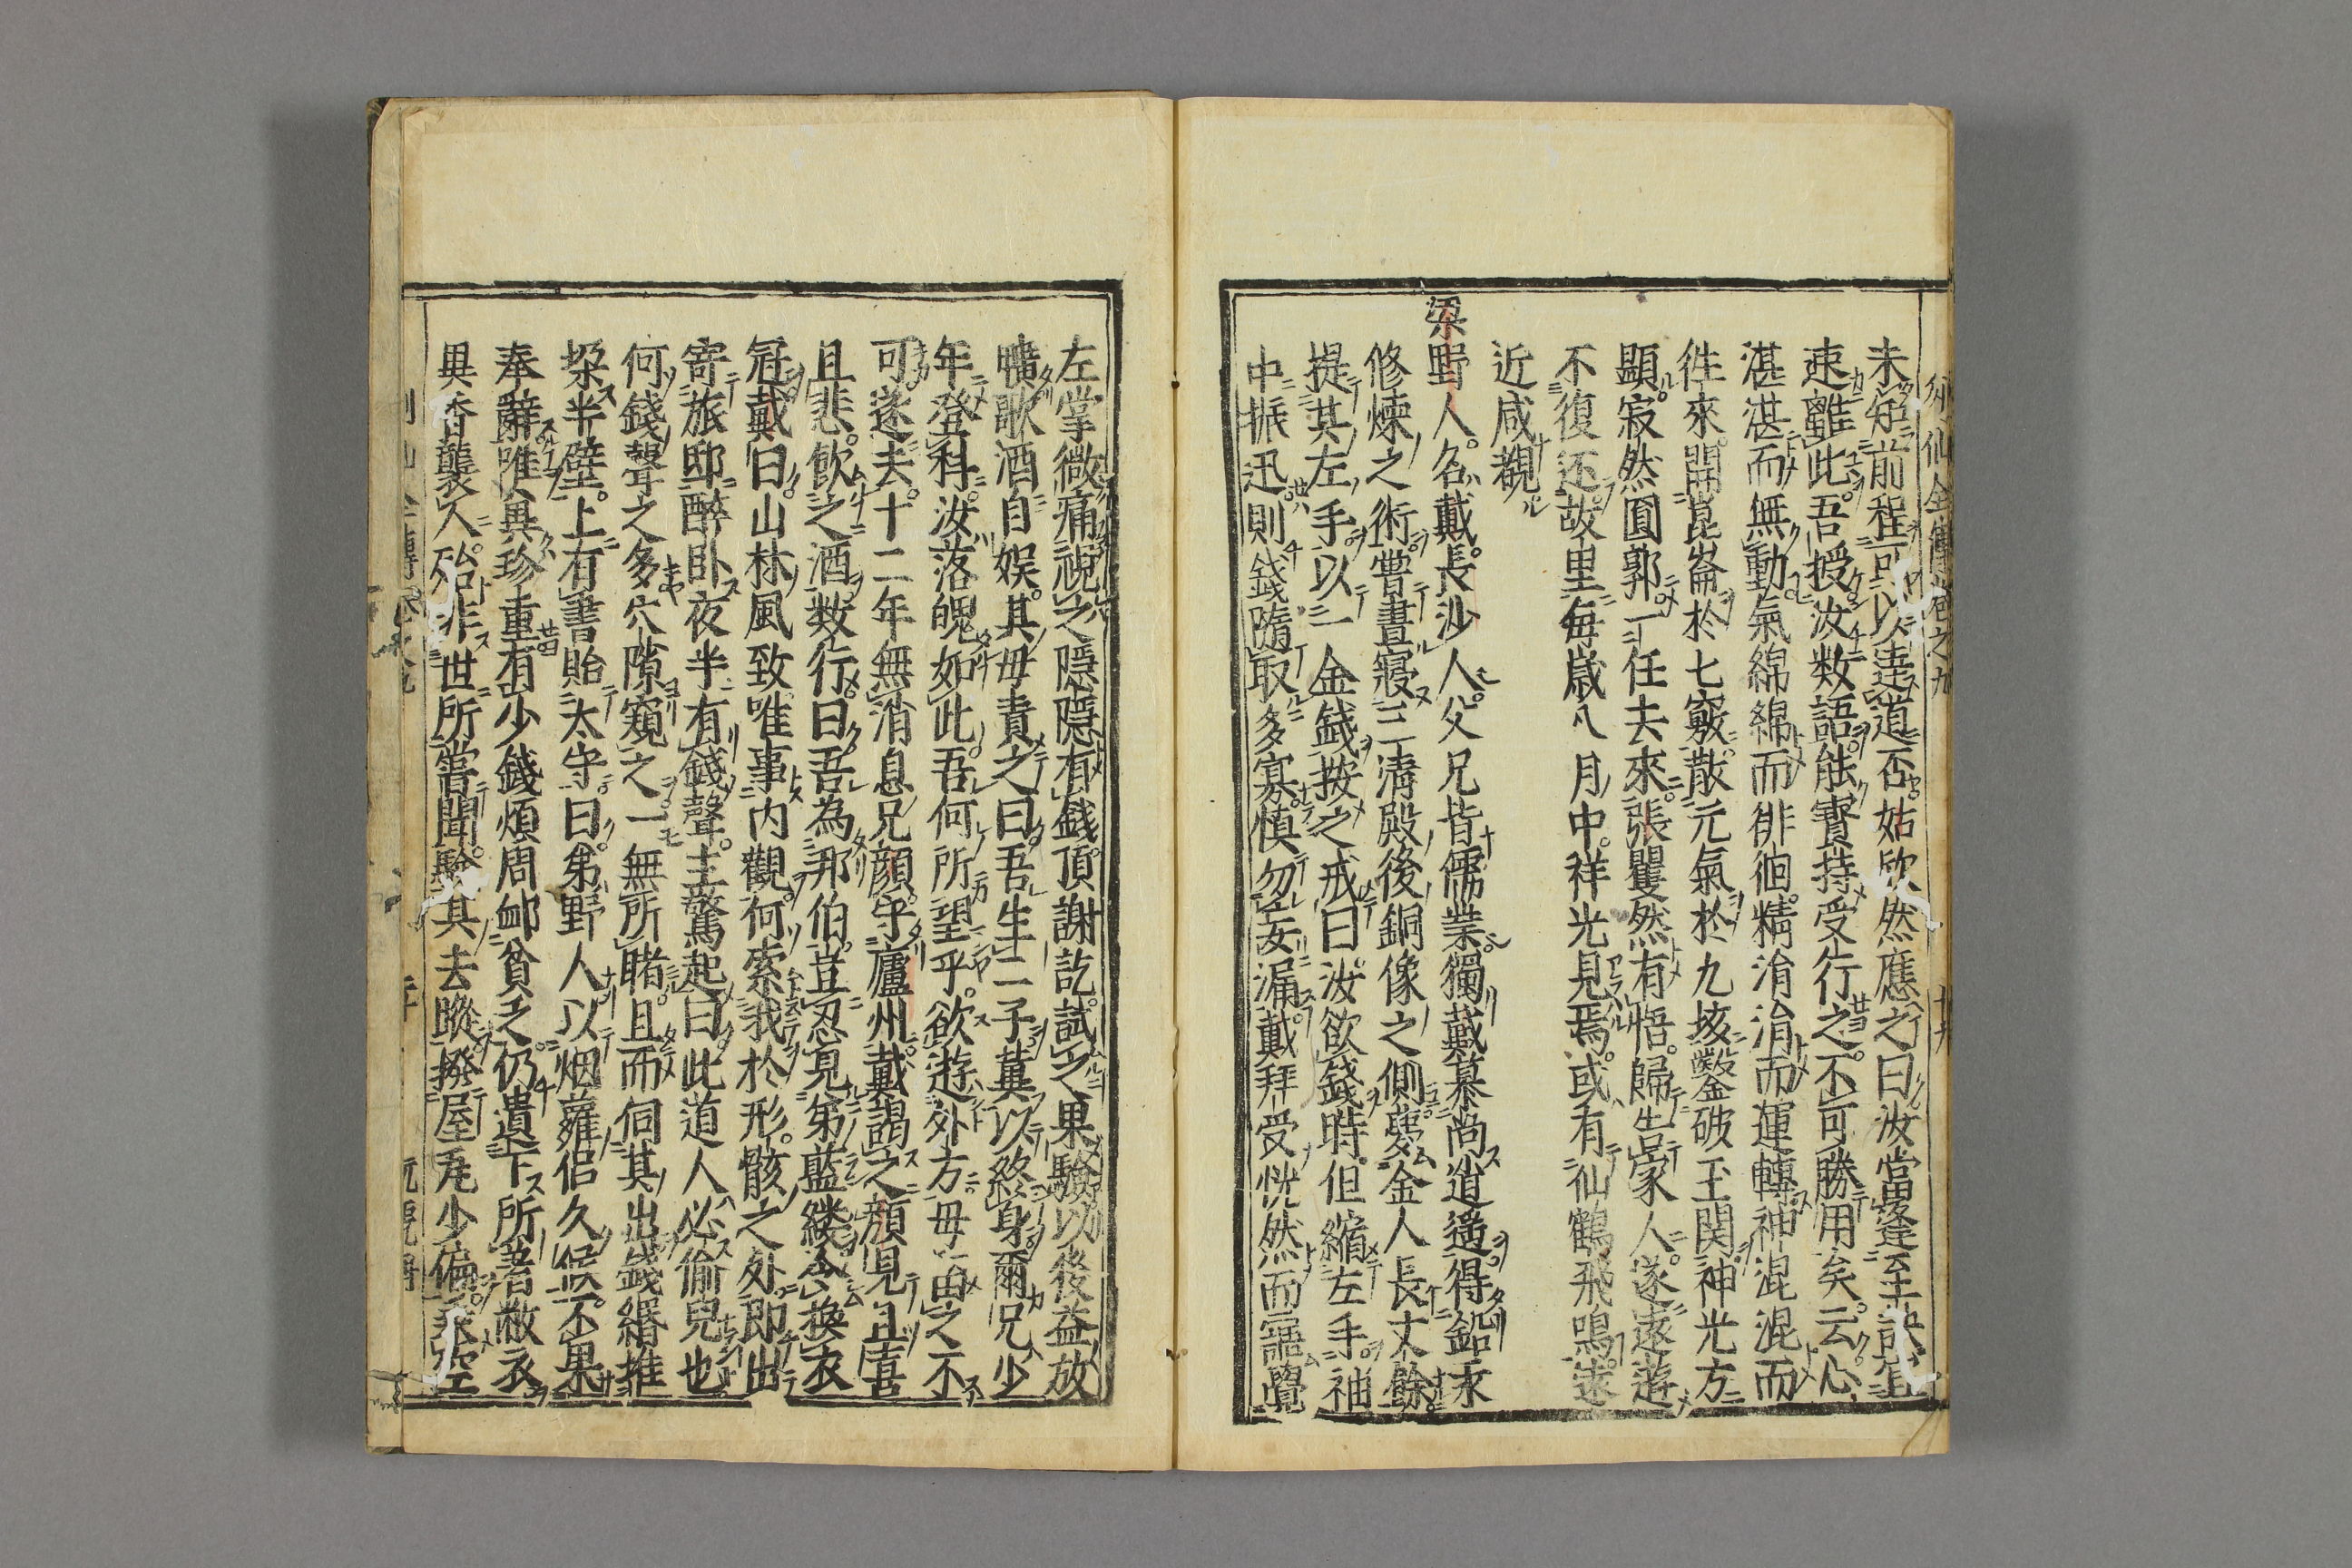 未知前程可以達道否姑欣然應之曰汝當逢至訣宜
速離此吾授汝数語能寳持受行之不可勝用矣云心
湛湛而無動氣綿綿而徘徊精涓涓而運轉神混混而
徃來開崑崙於七竅散元氣於九垓鑿破玉関神光方
顯寂然圓郭一任去來張矍然有悟歸告家人遂遠遊
不復还故里毎歳八月中祥光見焉或有仙鶴飛鳴遠
近咸觀
梁野人名戴長沙人父兄皆儒業獨戴慕尚道遊得鉛汞
修煉之術嘗晝寢三清殿後銅像之側夢金人長丈餘
提其左手以一金錢按之戒曰汝欲錢時但縮左手袖
中振迅則錢隨取多寡慎勿妄漏戴拜受恍然而寤覺
左掌微痛視之隱隱有錢頂謝訖試之果驗功後益放
曠歌酒自娱其母責之曰吾生二子冀以終身爾兄少
年登科汝落魄如此吾何所望乎欲遊外方母留之不
可遂去十二年無消息兄顔守廬州戴謁之顔見且喜
且悲飲之酒数行曰吾為邦伯豈忍見弟藍縷令換衣
冠戴曰山林風致唯事内觀何索我於形骸之外即出
寄旅邸醉卧夜半有錢聲主驚起曰此道人必偷兒也
何錢聲之多穴隙窺之一無所睹且而伺其出錢緡推
垜半壁上有書貽太守曰弟野人以烟蘿侣久候不果
奉辭唯兾珍重有少錢煩周邮貧乏仍遺下所著敝衣
異香襲人殆非世所嘗聞驗其去蹤撥屋尾少偏乘空
列仙全傳卷之九